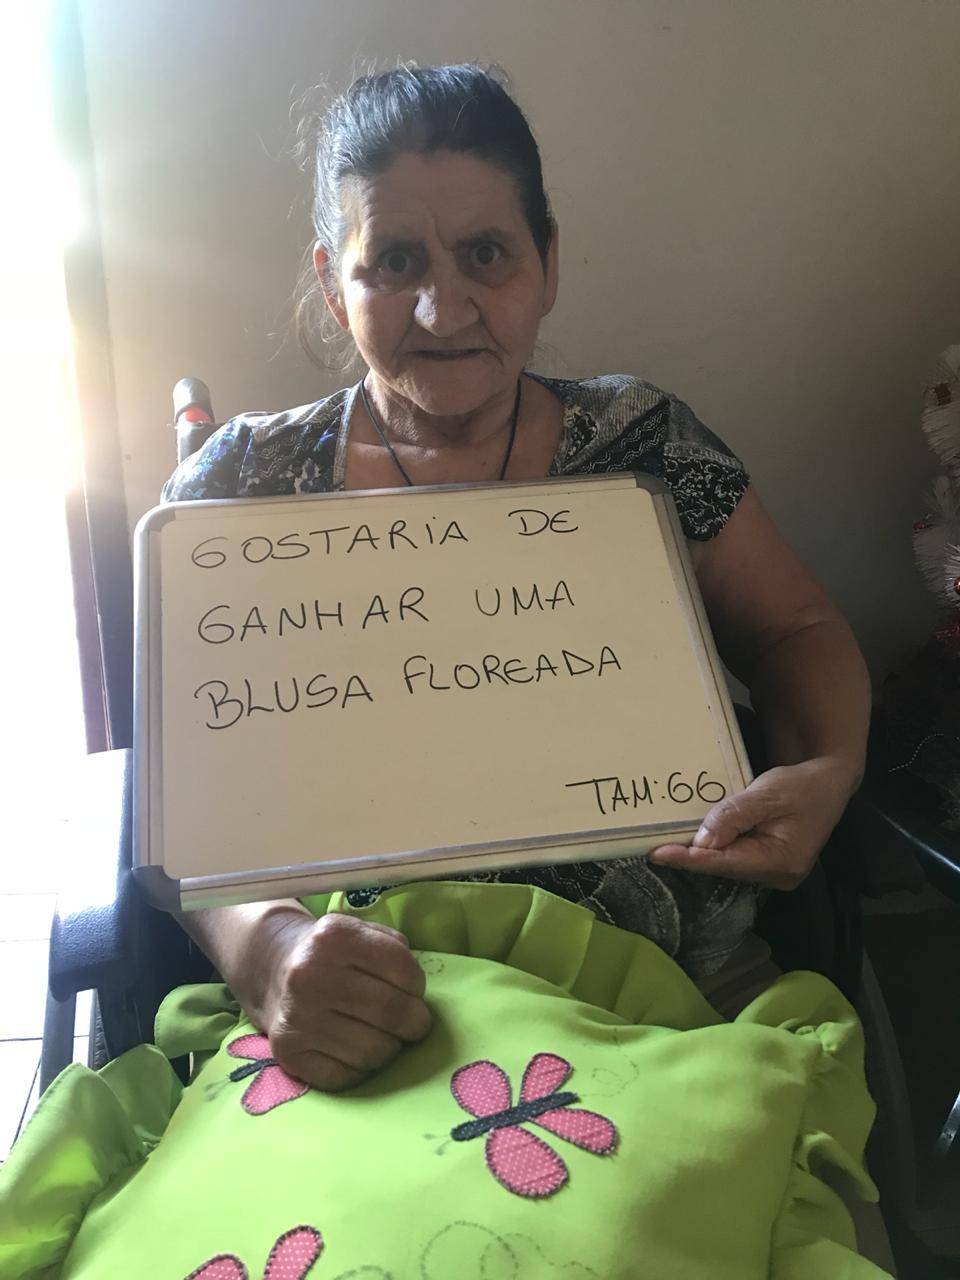 GOSTARiA DE
GANHAR UMA
BLUSA FLOREADA
TAM:GG